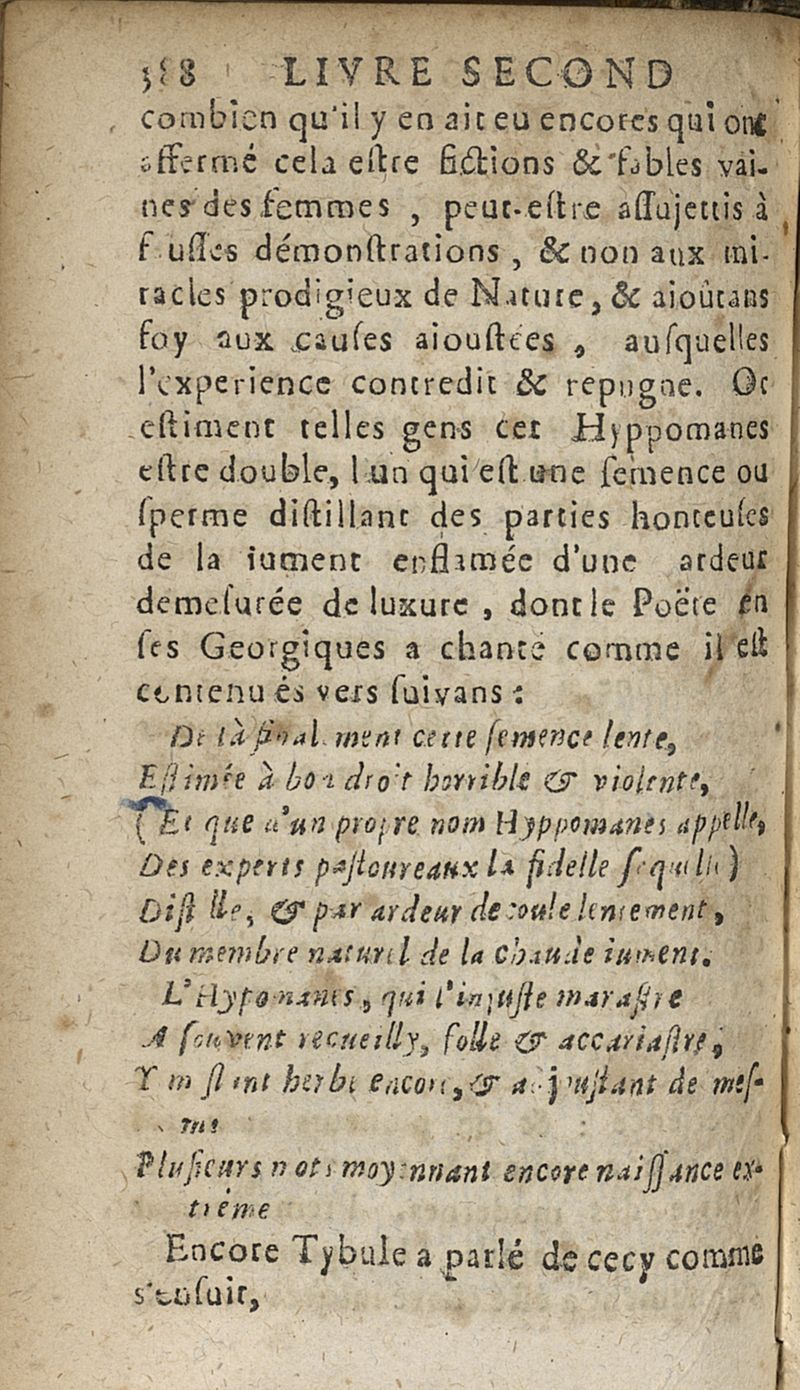 LIVRE SECOND
combien qu'il y en ait eu encores qui ont
affermé cela eſtre fictions & fables vai-
nes des femmes , peut-eſtre aſſujettis à
fauſſes démonſtrations , & non aux mi-
racles prodigieux de Nature, & aioûtans
foy aux cauſes aiouſtées , auſquelles
l'experience contredit & repugne. Or
eſtiment telles gens cet Hyppomanes
eſtre double, l'un qui eſt une ſemence ou
ſperme diſtillant des parties honteuſes
de la iument enflamée d'une ardeur
demeſurée de luxure , dont le Poëte en
ſes Georgiques a chanté comme il eſt
contenu és vers ſuivans :
De là finalement cette ſemence lente,
Eſtimée à bon droit horrible & violente,
( Et que d'un propre nom Hyppomanes appelle,
Des experts paſtoureaux la fidelle ſequelle )
Diſtille, & par ardeur decoule lentement,
Du membre naturel de la chaude iument.
L'Hypomanes, qui l'injuſte maraſtre
A ſouvent recueilly, folle & accariaſtre,
Y meſlant herbe encore, & adjouſtant de meſ-
me
Pluſieurs mots moyennant encore naiſſance ex-
tréme
Encore Tybule a parlé de cecy comme
s'enſuit,